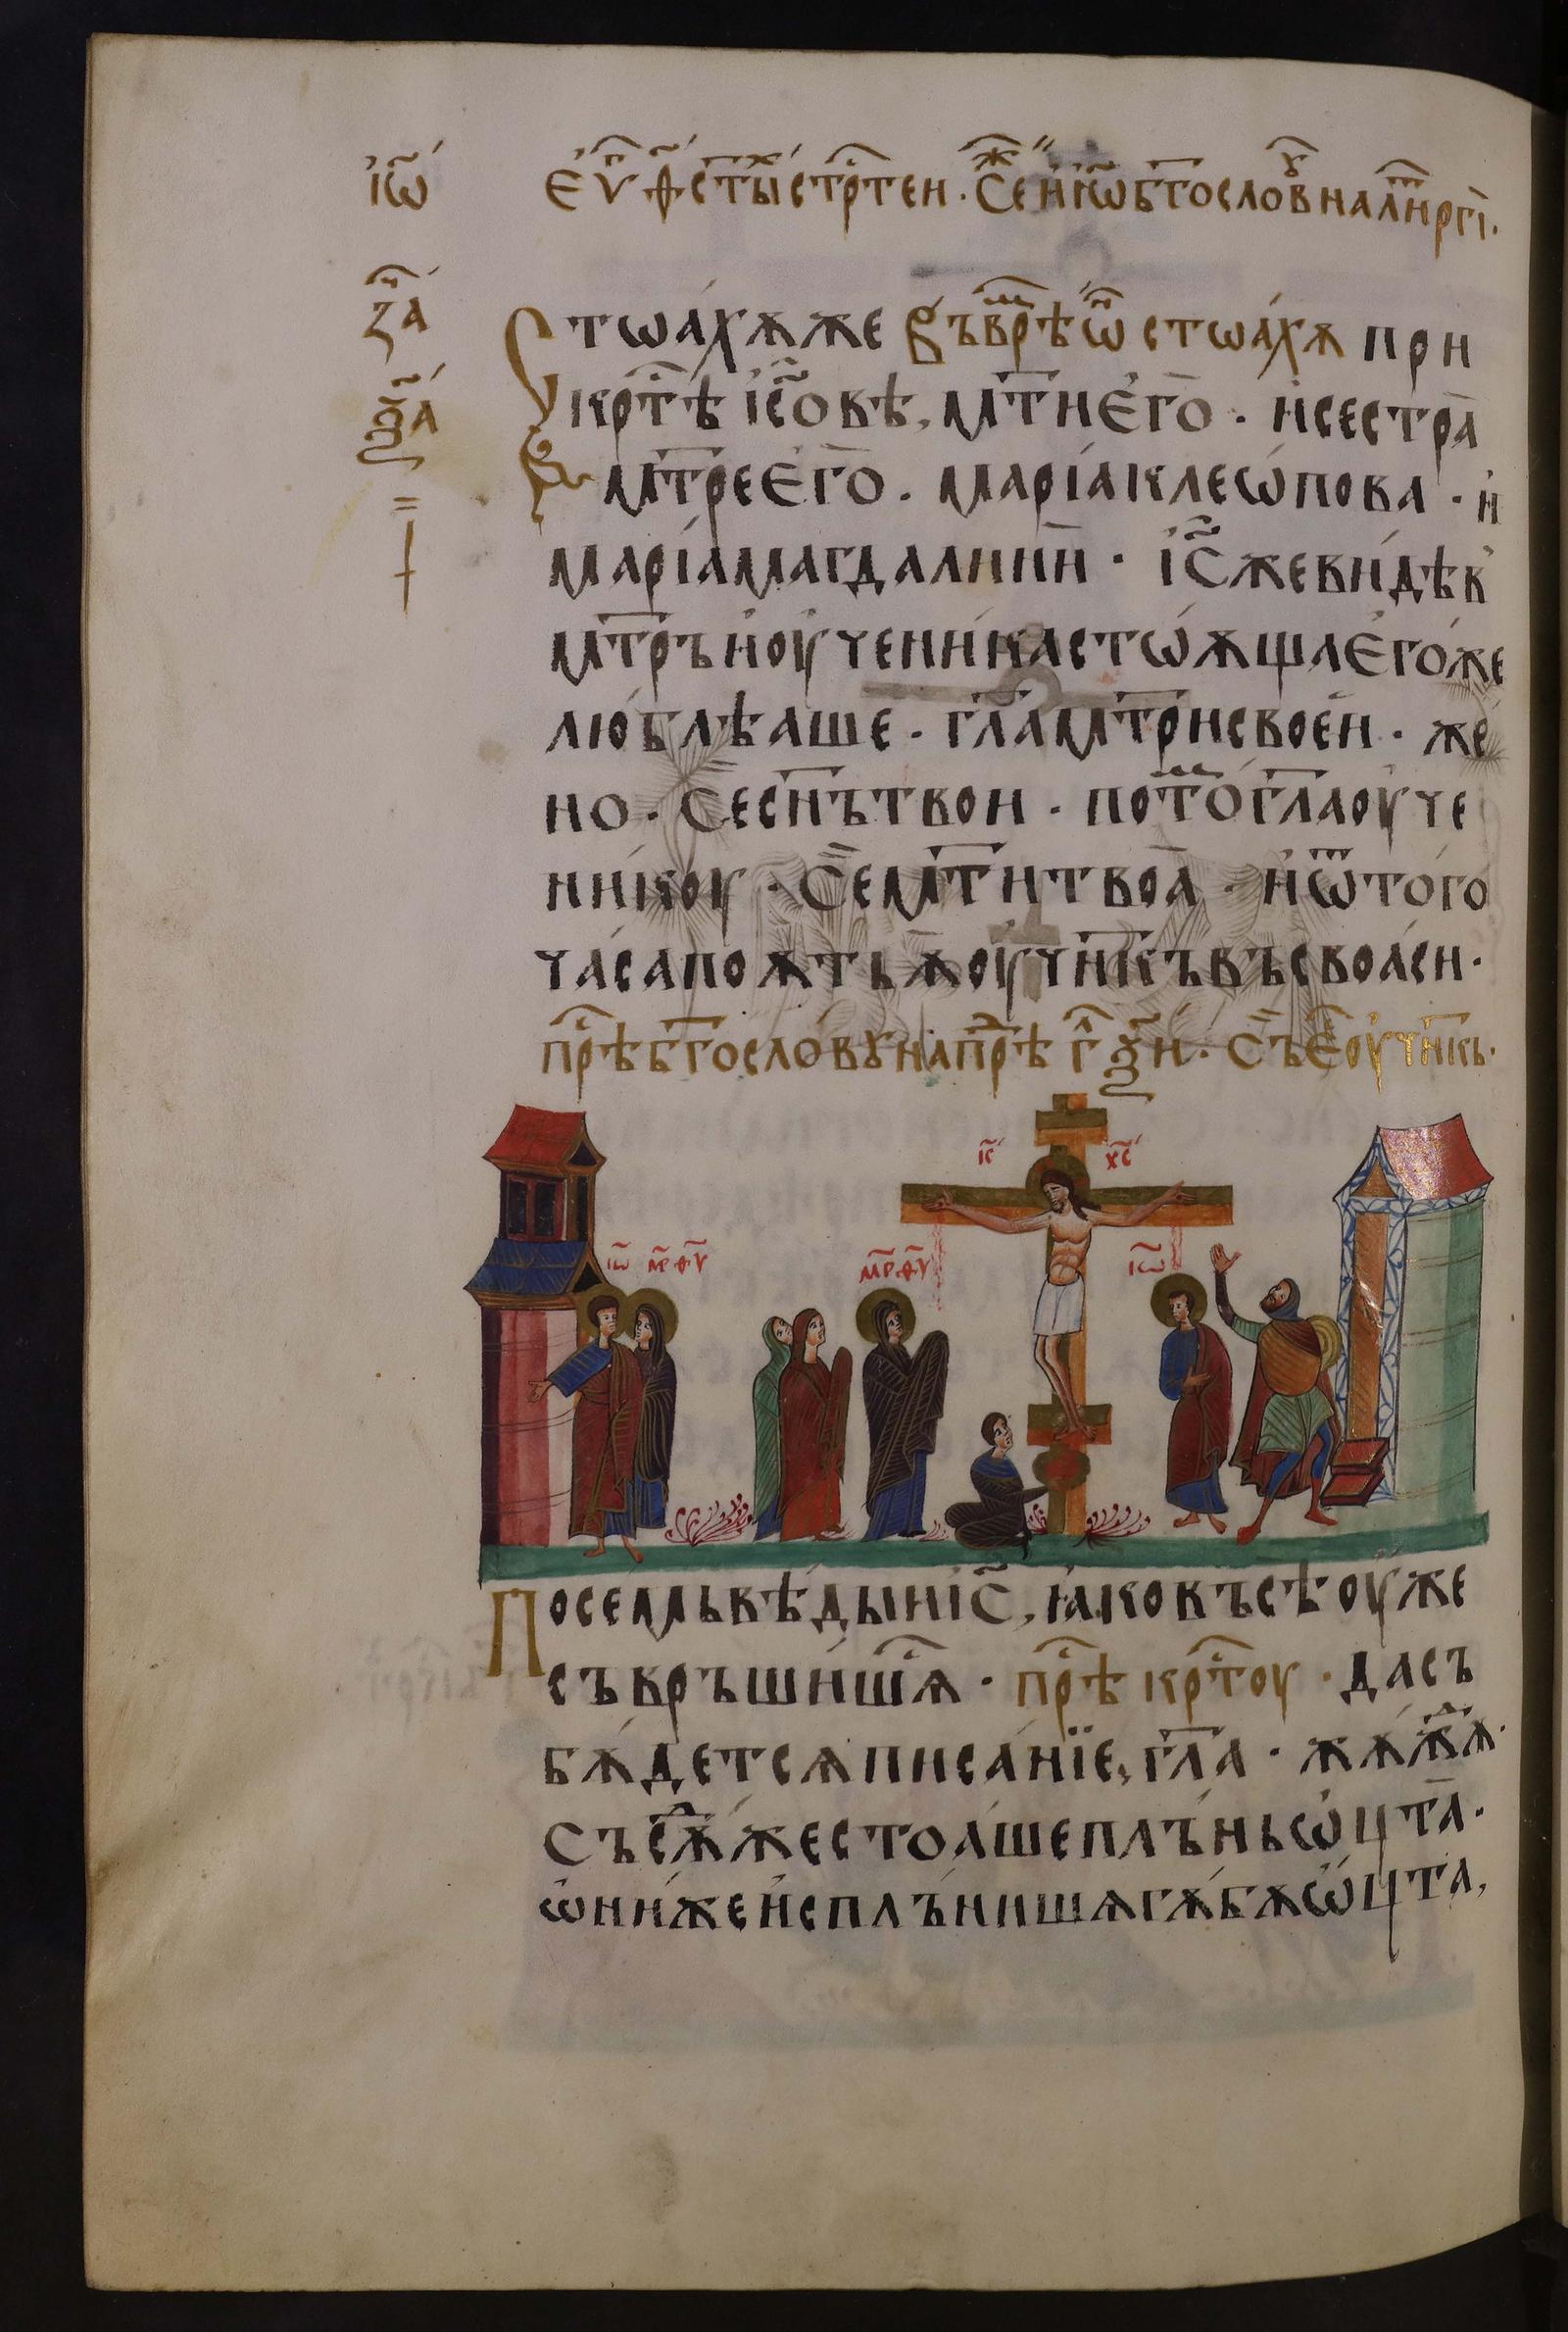 і҆ѡ҃
Є҆ѵⷢ҇ ѳ҃ ст҃ыⷯ стрⷭ҇теи · Сеⷤ и҆ і҆ѡ҃ бг҃ословꙋ на лиⷮргі ·
за҃ч
ѯ҃а
=
Стѡа́хѫ же въ врѣⷨѡⷩ҇ стѡа́хѫ при
крⷭ҇тѣ і҆с҃овѣ, мт҃и е҆го̀ · и҆ сестра̀
мт҃ре е҆го̀ · марі́а клеѡ́пова · и҆
марі́а магдалини̇̀ · І҆с҃ же ви́дѣв
мт҃ръ и҆ оу҆чени́ка стѡ́ѫща е҆го́же
лю́блѣаше · гл҃а мт҃ри свое́и · же́
но · Се сн҃ъ твои · потоⷨ гл҃а оу҆че
ни́коу · Се мт҃и твоа̀ · и҆ ѿ то́го
часа поѫтъ ѫ҆ оу҆чн҃къ въ своа́си ·
прⷣѣ бг҃ословꙋ на прⷣѣ г҃ ѯ҃и · Съ е҆ оу҆чн҃къ ·
і҃с х҃с
і҆ѡ҃ м҃р ѳ҃ѵ м҃р ѳ҃ѵ і҆ѡ҃
По семь вѣ́дый І҆с҃, ꙗ҆ко въсѣ оу҆же
съврьши́шѧⷭ · прⷣѣ крⷭ҇тоу · да съ
бѫ́детсѧ писа́нїе, гл҃а · жѫ́жⷣѫ ·
Съсѫⷣ же стоа́ше плъ́нь ѡ҆цта̀ ·
ѡ҆ни́ же и҆сплъ́нишѧ гѫ́бѫ ѡ҆цта,